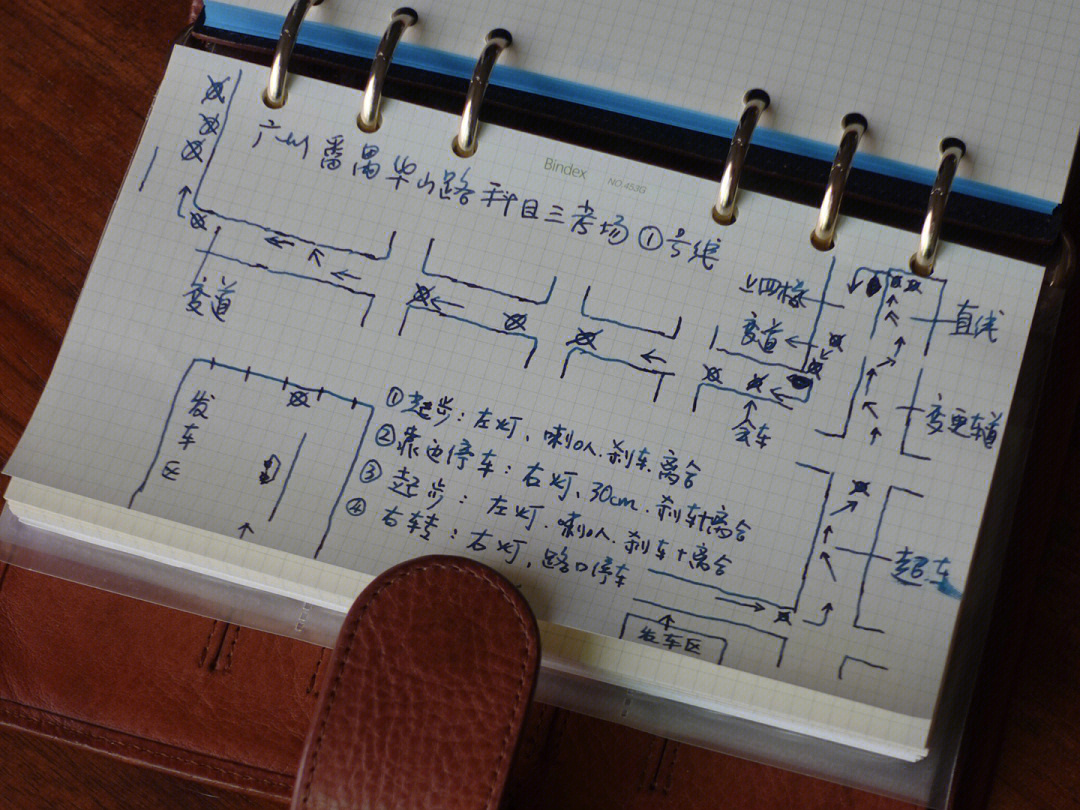 Bindex NO.453G
广州番禺华山路科目三考场①号线
直线
变道
变更车道
会车
超车
变道
发车区
①起步：左灯、喇叭、刹车、离合
②靠边停车：右灯、30cm、刹车+离合
③起步：左灯、喇叭、刹车+离合
④右转：右灯、路口停车
发车区